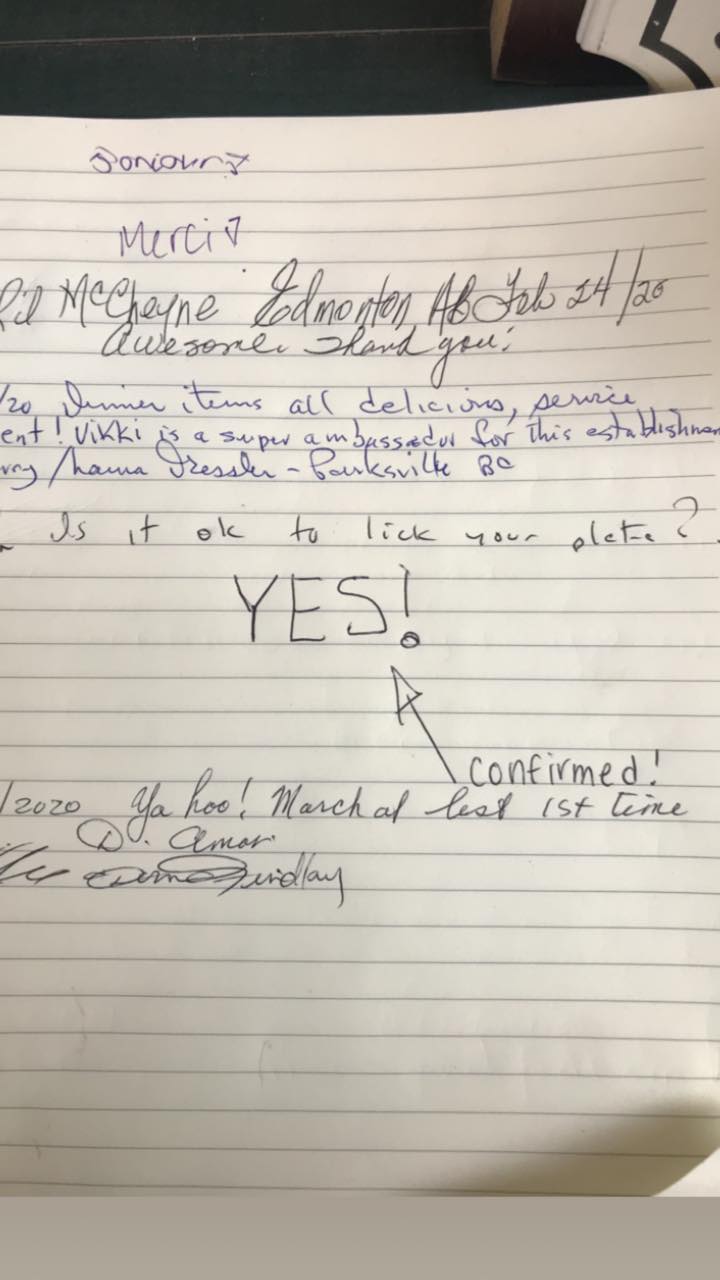 Merci
McCheyne Edmonton AB Feb 24/20
Awesome Thank you!
/20 Dinner items all delicious, service
ent! Vikki is a super ambassador for this establishmen
Dressler - Parksville BC
Is it ok to lick your plate?
YES!
confirmed!
/2020 Ya hoo! March at 1st time
D.
Findlay